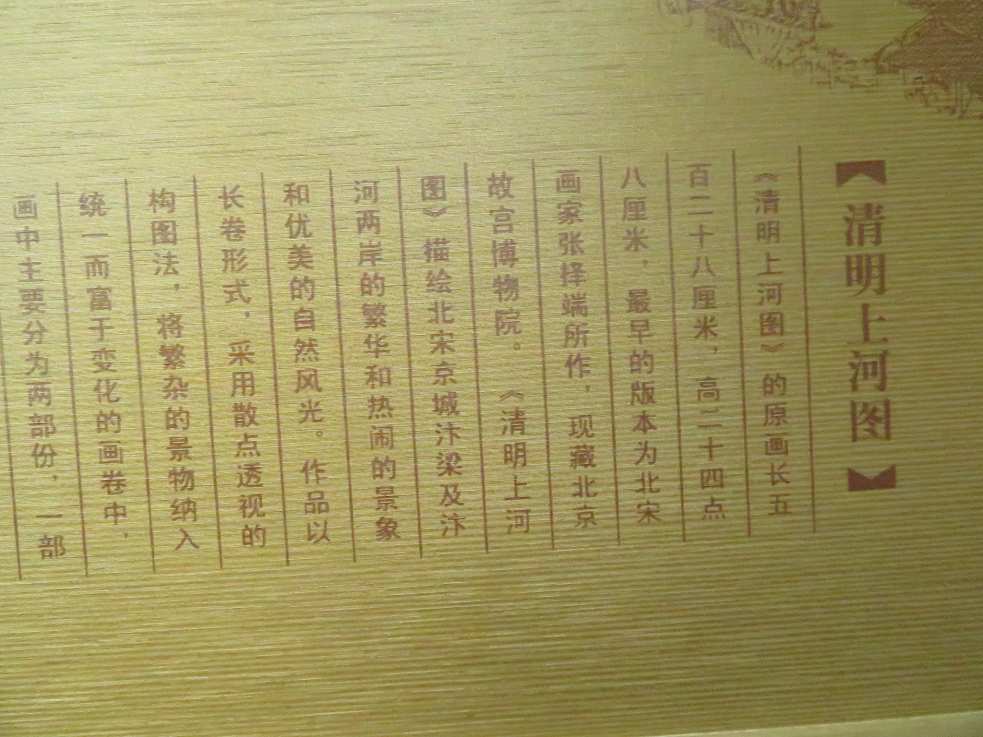 【清明上河图】
《清明上河图》的原画长五
百二十八厘米，高二十四点
八厘米，最早的版本为北宋
画家张择端所作，现藏北京
故宫博物院。《清明上河
图》描绘北宋京城汴梁及汴
河两岸的繁华和热闹的景象
和优美的自然风光。作品以
长卷形式，采用散点透视的
构图法，将繁杂的景物纳入
统一而富于变化的画卷中，
画中主要分为两部份，一部